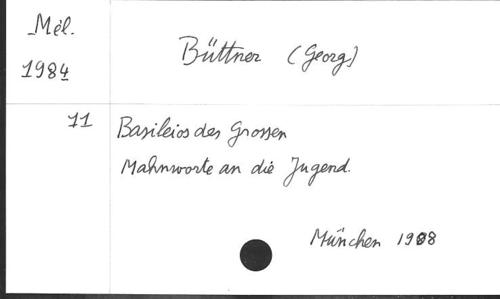 Mél.
1984
Büttner (Georg)
11
Basileios des Grossen
Mahnworte an die Jugend.
München 1908